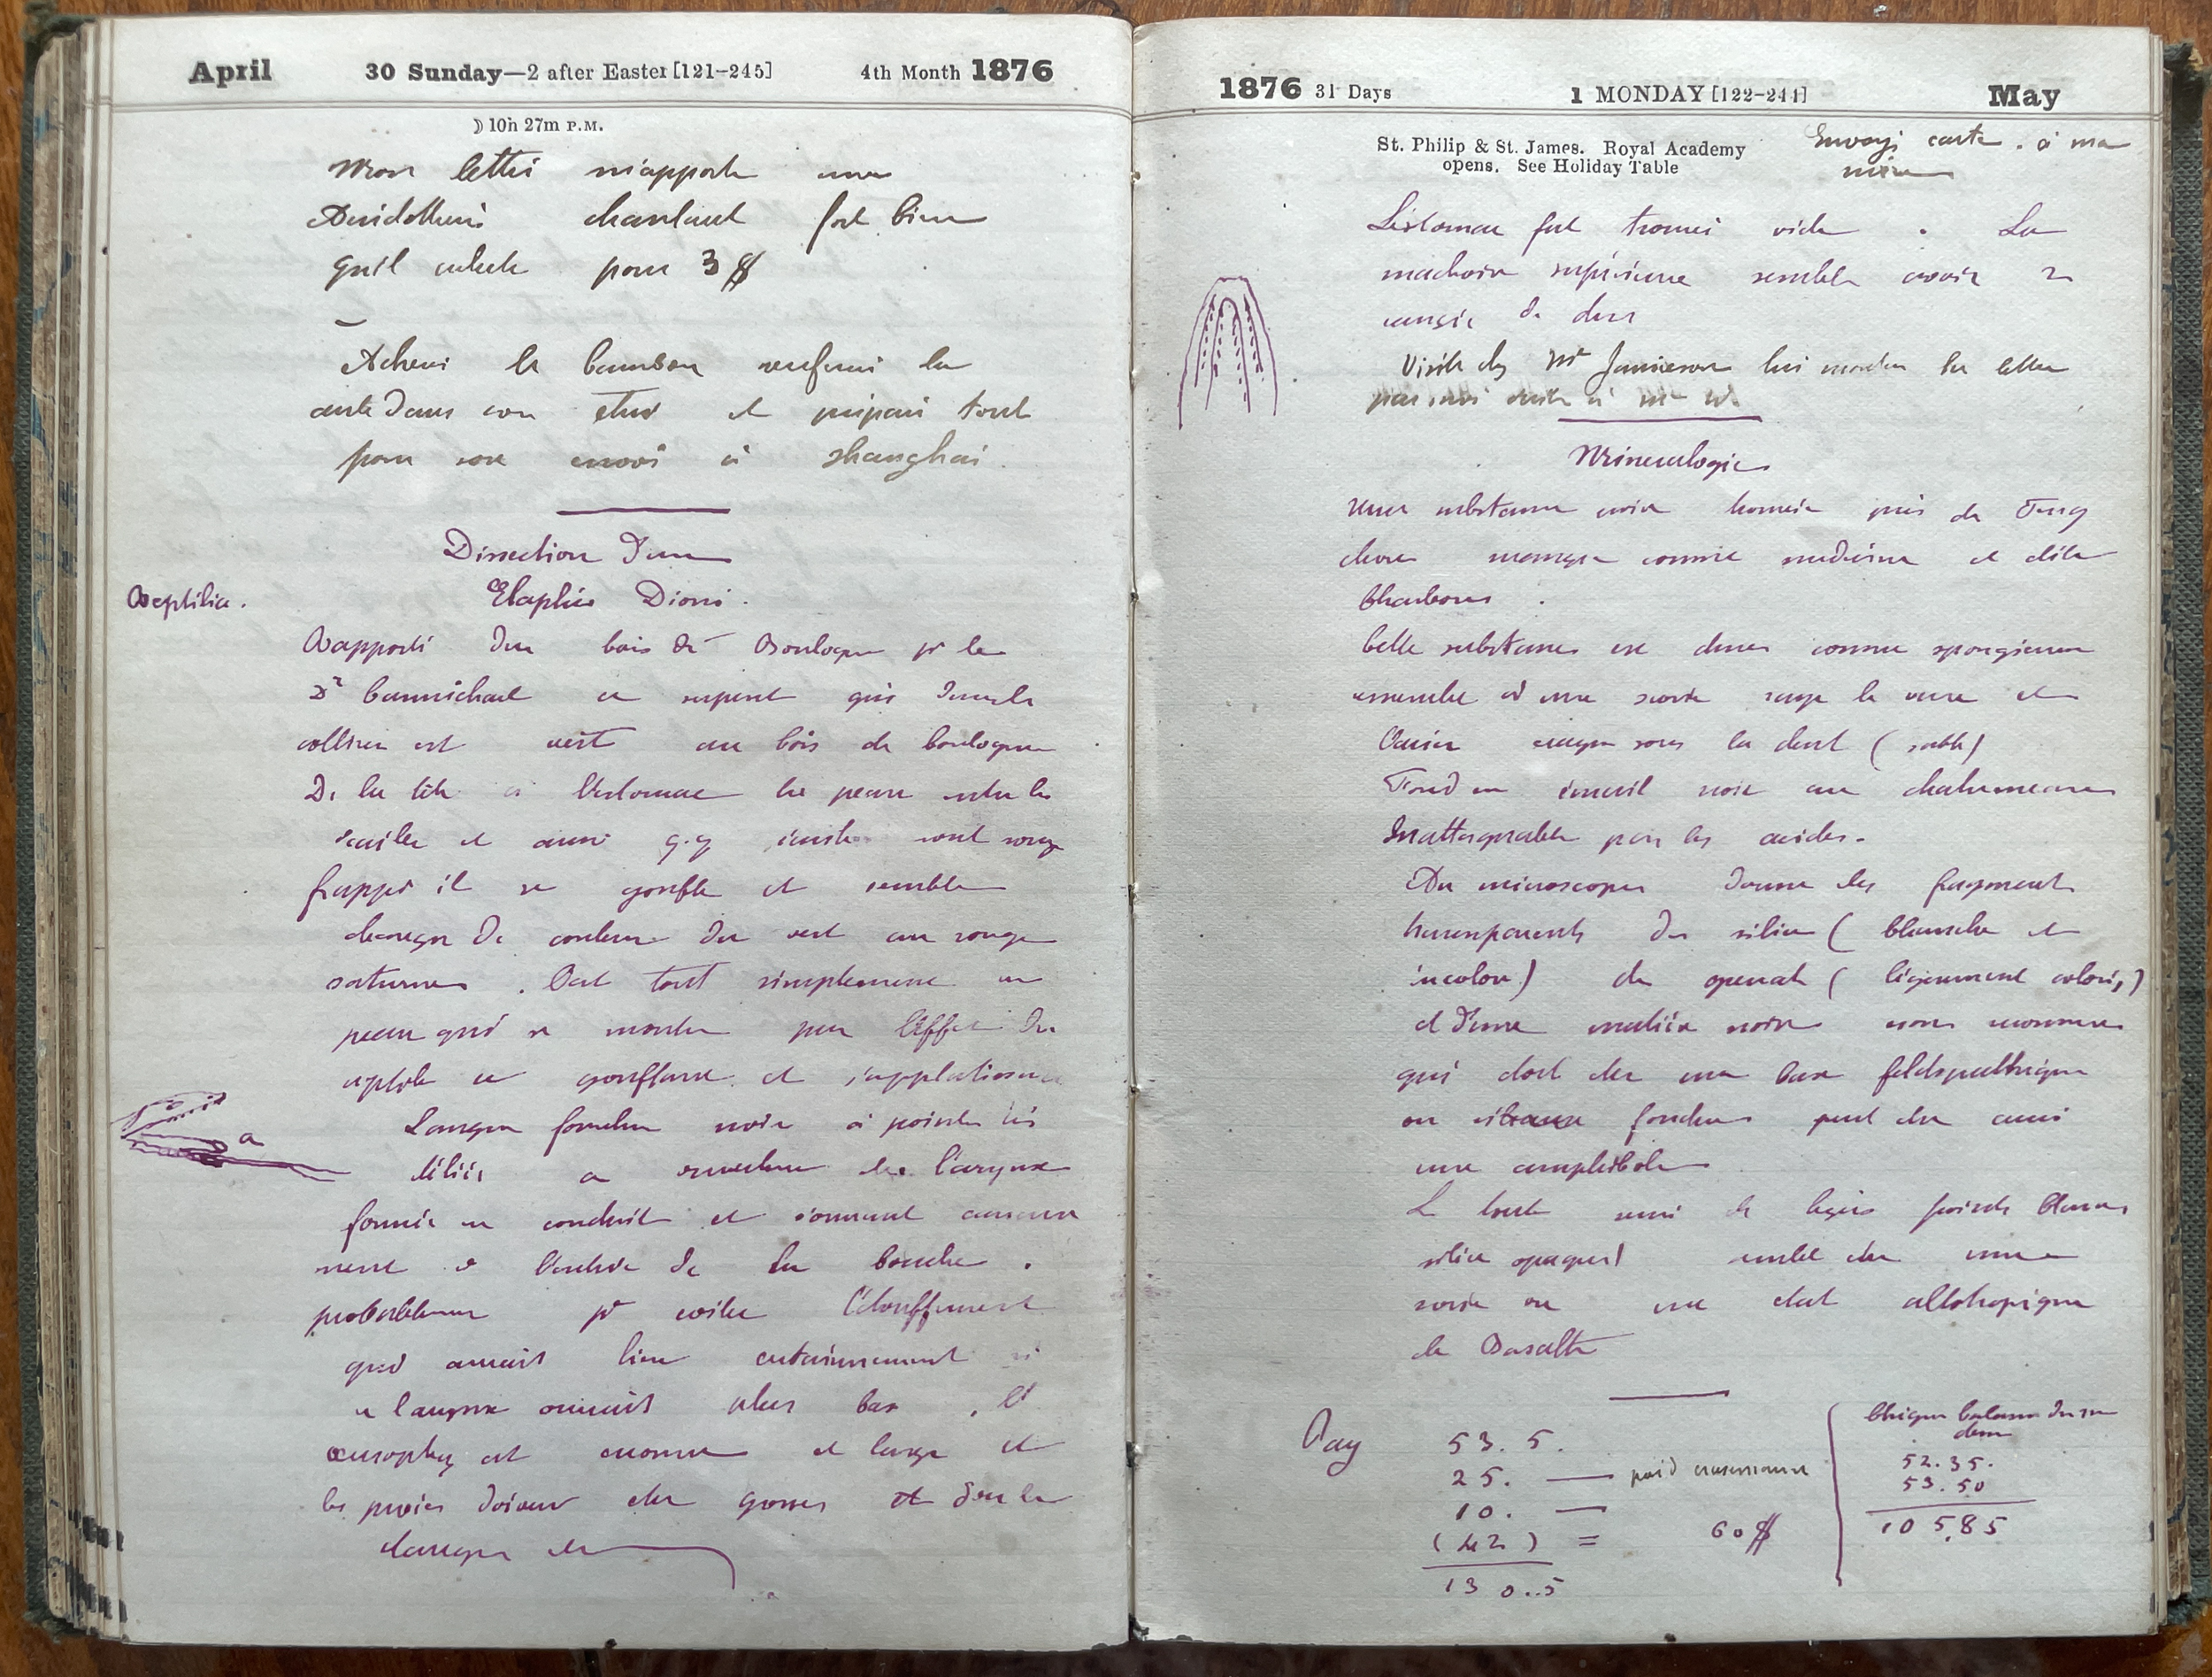 April 30 Sunday—2 after Easter [121-245] 4th Month 1876
☽ 10h 27m P.M.
Mon lettré m'apporte une
chantant fort bien
qu'il achete pour 3 $
Acheve le renfermé la
carte dans son etui et préparé tout
pour son envoi à Shanghai.
Dissection d'un
Reptilia.
Elaphis Dioni.
Rapporté du bois de Boulogne pr le
Dr Carmichael ce serpent qui dans la
colline est vert au bois de boulogne
De la tête à l'estomac la peau entre les
écailles et aussi q.q sont rouge
frappé il se gonfle et semble
changer de couleur du vert au rouge
saturne. C'est tout simplement sa
peau qui se montre par l'effet du
reptile se gonflant et s'applatissant
a
Langue fourchue noire à pointes très
déliées a ouverture du larynx
formée en conduit et s'ouvrant
à l'entrée de la bouche.
probablement pr eviter l'étouffement
qui aurait lieu certainement si
le larynx ouvrait plus bas. L'
oesophage est enorme et large et
les proies doivent etre grosses et dans la
1876 31 Days 1 MONDAY [122-244] May
St. Philip & St. James. Royal Academy
opens. See Holiday Table
Envoyé carte à ma
mère
L'estomac fut trouvé vide. La
machoire supérieure semble avoir 2
rangées de dens
Visite chez Mr Jamieson lui montre la lettre
Mineralogie
Une substance noire trouvée près de Teng
chou mangée comme medecine et dite
Cette substance est dure comme spongieuse
ressemble à une scorie raye le verre et
l'acier craque sous la dent (sable)
Fond en émail noir au chalumeau
Inattaquable par les acides.
Au microscope donne des fragments
transparents de silice (blanche et
incolore) de grenat (légèrement coloré,)
et d'une matière noire non reconnue
qui doit etre une base feldspathique
ou vitreuse fondue peut etre aussi
une amphibole
Le tout semé de légers points blancs
silice opaque) semble etre une
scorie ou un etat allotropique
de Basalte
Pay
53. 5.
25. — paid
10. —
(42) = 60 $
130..5
52.35.
53.50
105,85